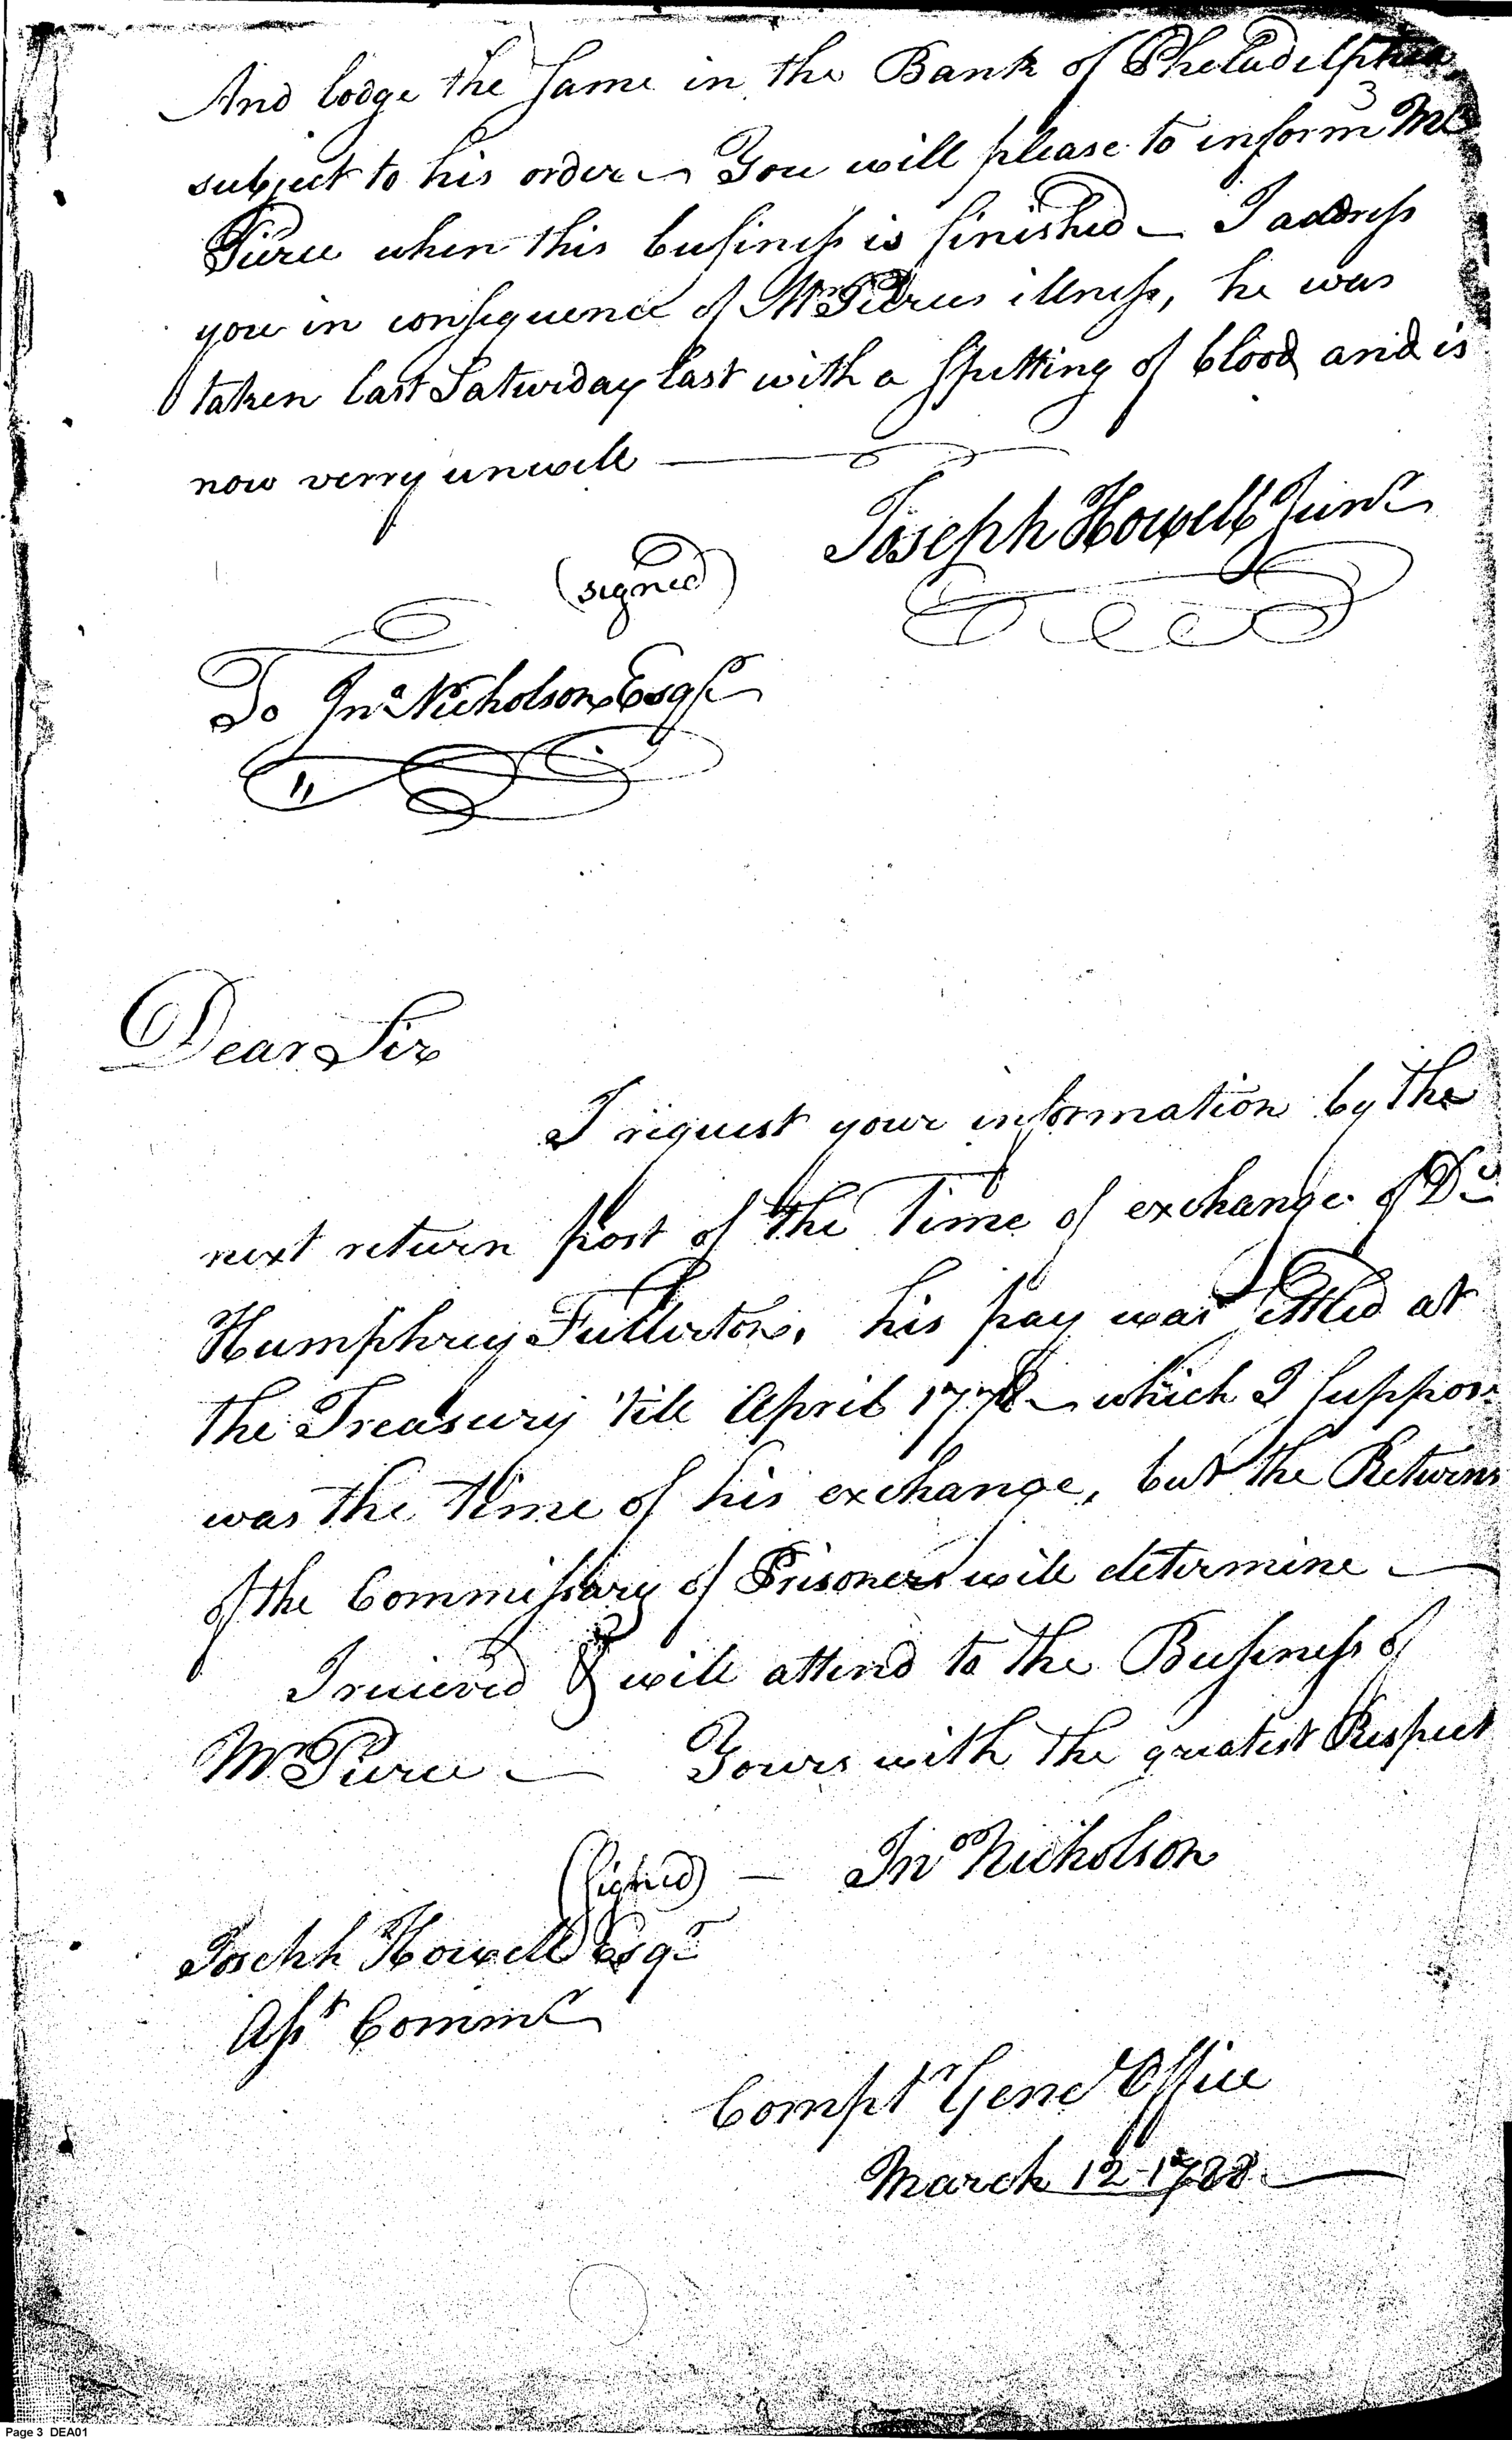 And lodge the same in the Bank of Pheladelphia
3
subject to his order – You will please to inform Mr
Pierce when this business is finished – I address
you in consequence of Mr Pierces illness, he was
taken last Saturday last with a spitting of blood and is
now verry unwell
Joseph Howell Junr
(signed)
To Jno Nicholson Esqr
Dear Sir
I request your information by the
next return post of the Time of exchange of Dr
Humphrey Fullerton, his pay was settled at
the Treasury 'till April 1778 – which I suppose
was the time of his exchange, but the Returns
of the Commissary of Prisoners will determine –
I recieved & will attend to the Business of
Mr Pierce – Yours with the greatest Respect
(signed) – Jno Nicholson
Joseph Howell Esqr
Asst Commr
Compt Genl Office
March 12 - 1788
Page 3 DEA01